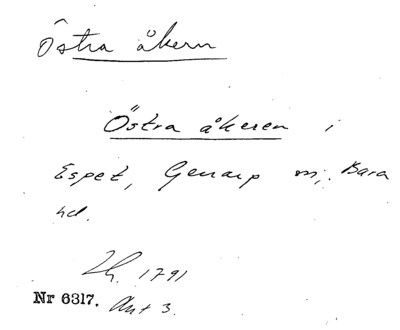 Östra åkern
Östra åkeren i
Espet, Genarp m; Bara
hd.
Lh. 1791
Nr 6317. Akt 3.